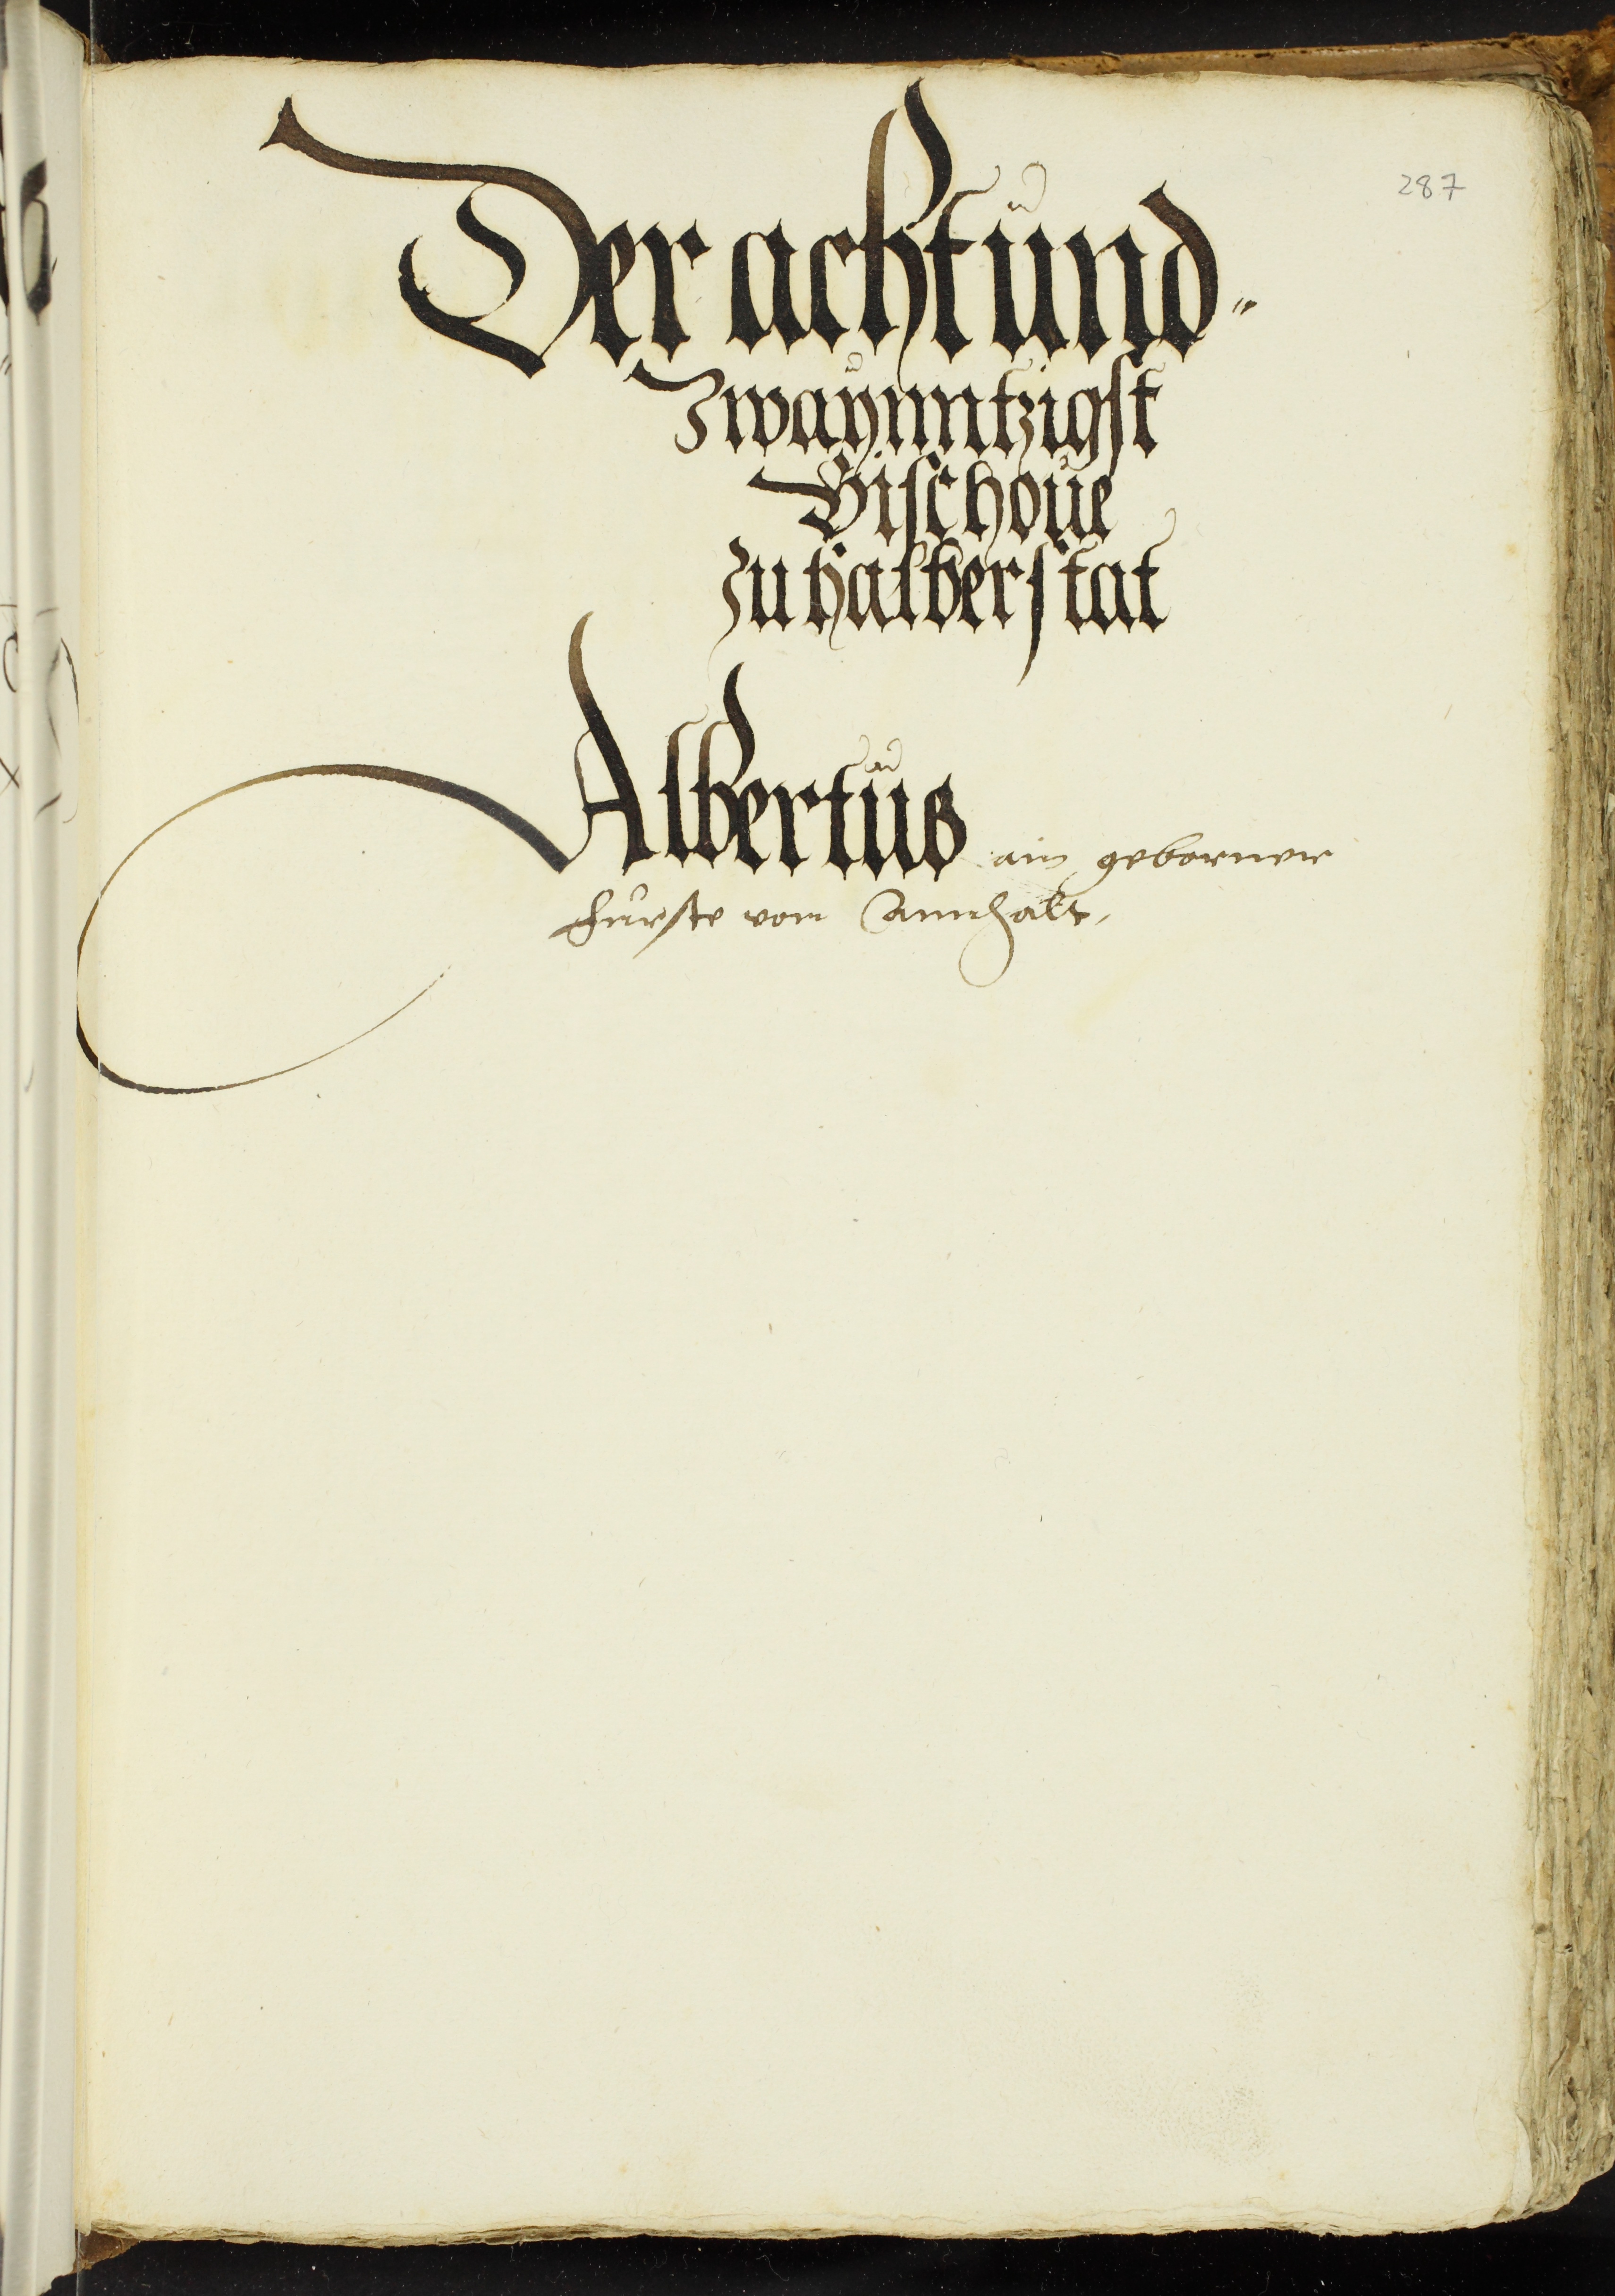 287
Der achtund„
Zwaynntzigst
Bischoue
zu halberstat
Albertus ain geborner
furste von Annhalt,